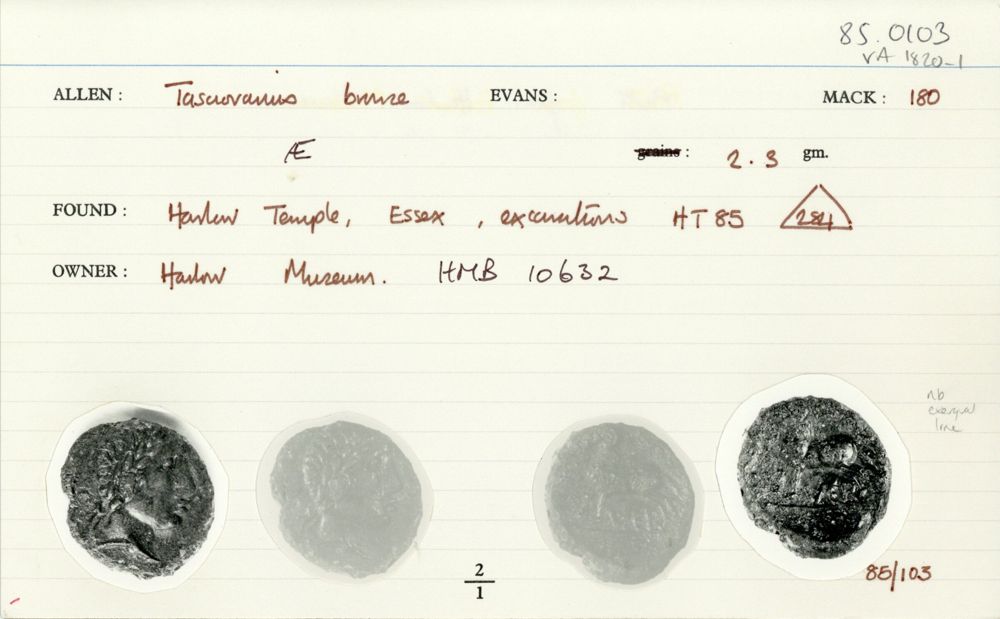 85.0103
VA 1820-1
ALLEN : Tasciovanus bronze EVANS : MACK : 180
Æ grains : 2.3 gm.
FOUND : Harlow Temple, Essex, excavations HT85 284
OWNER : Harlow Museum. HMB 10632
nb
exergual
line
2
1
85/103